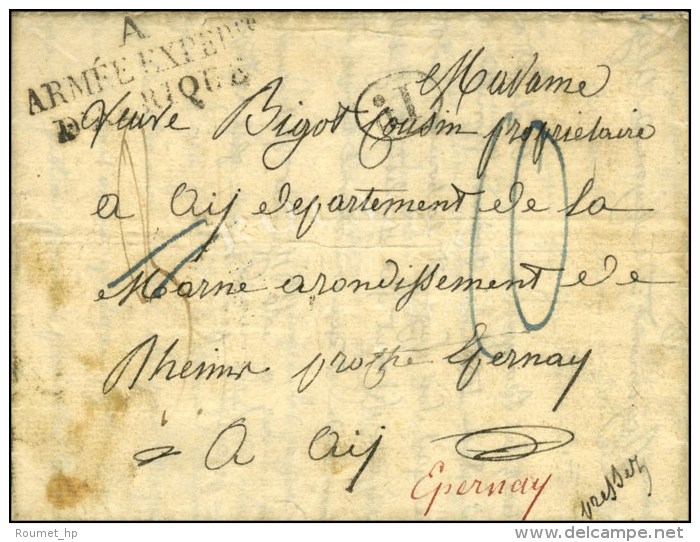 A
ARMÉE EXPÉDre
D'AFRIQUE
Madame
Veuve Bigot Cousin propriétaire
a Aij departement de la
Marne arondissement de
Rheims proche Epernay
A Aij
Epernay
presser
Roumet_hp
© delcampe.net